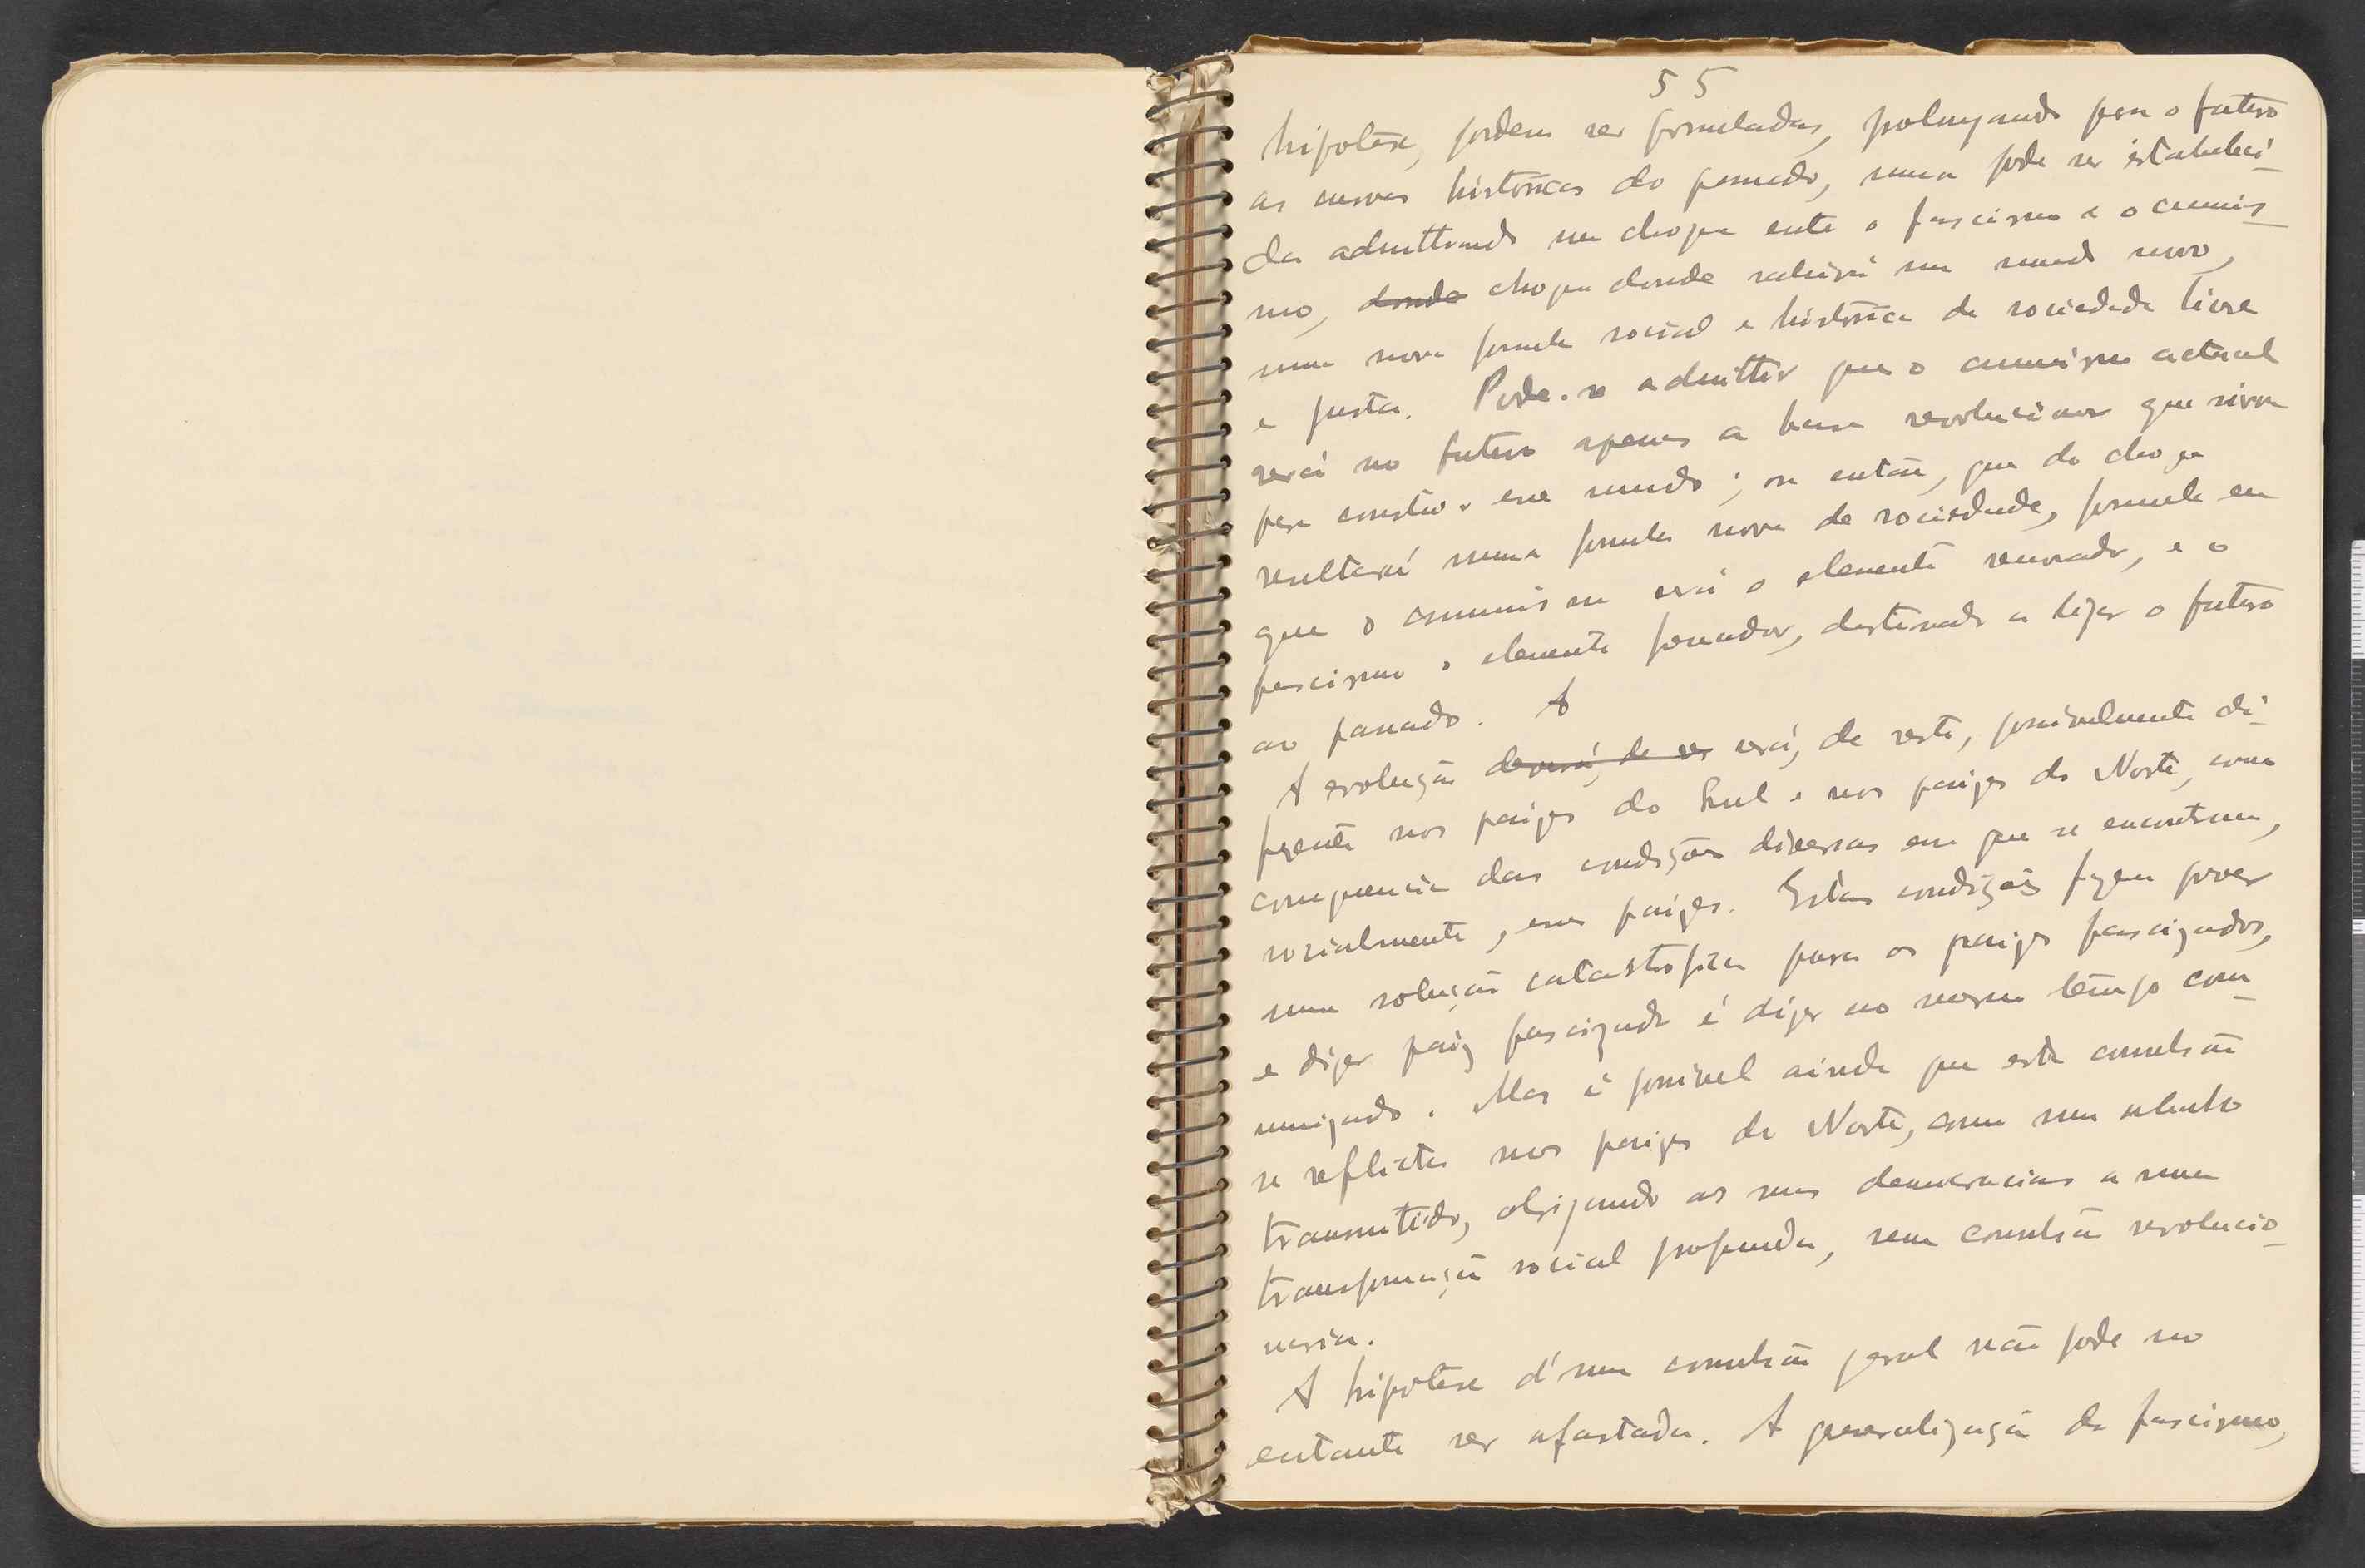 55
hipotese, podem ser formuladas, prolongando para o futuro
as curvas históricas do passado, numa pode ser estabeleci-
da admittindo um choque entre o fascismo e o comunis-
mo, donde choque donde sahirá um mundo novo,
uma nova formula social e histórica de sociedade livre
e justa. Pode-se admittir que o comunismo actual
será no futuro apenas a base revolucionar que sirva
para construir esse mundo; ou então, que do choque
resultará numa formula nova de sociedade, formula em
que o comunismo será o elemento renovador, e o
fascismo o elemento forçador, destinado a ligar o futuro
ao passado. A
A evolução deverá, de ser será, de resto, possivelmente di-
ferente nos paizes do Sul e nos paizes do Norte, como
consequencia das condições diversas em que se encontram,
socialmente, esses paizes. Estas condições fazem prever
uma solução catastrofica para os paizes fascizados,
e dizer paiz fascizado é dizer ao mesmo tempo com-
munizado. Mas é possivel ainda que esta convulsão
se reflicta nos paizes do Norte, como um
transmitido, obrigando as suas democracias a uma
transformação social profunda, sem convulsão revolucio-
naria.
A hipotese d'uma convulsão geral não pode no
entanto ser afastada. A generalização do fascismo,